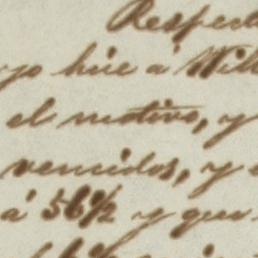 Respect
yo hice á Will
el motivo, y
vencidos, y
á 56½ y que